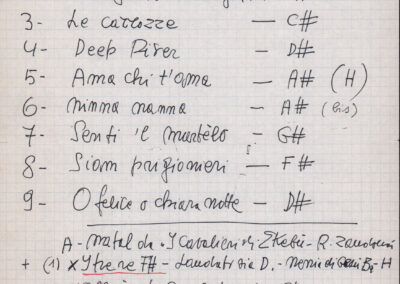 3- Le carrozze — C#
4- Deep River — D#
5- Ama chi t'ama — A# (H)
6- ninna nanna — A# (bis)
7- Senti 'l martèlo — G#
8- Siam prigionieri — F#
9- O felice o chiara notte — D#
A - Natal da - I cavalieri di Ekebù - R. Zandonai
+ (1) x F# - Laudato sia D. -